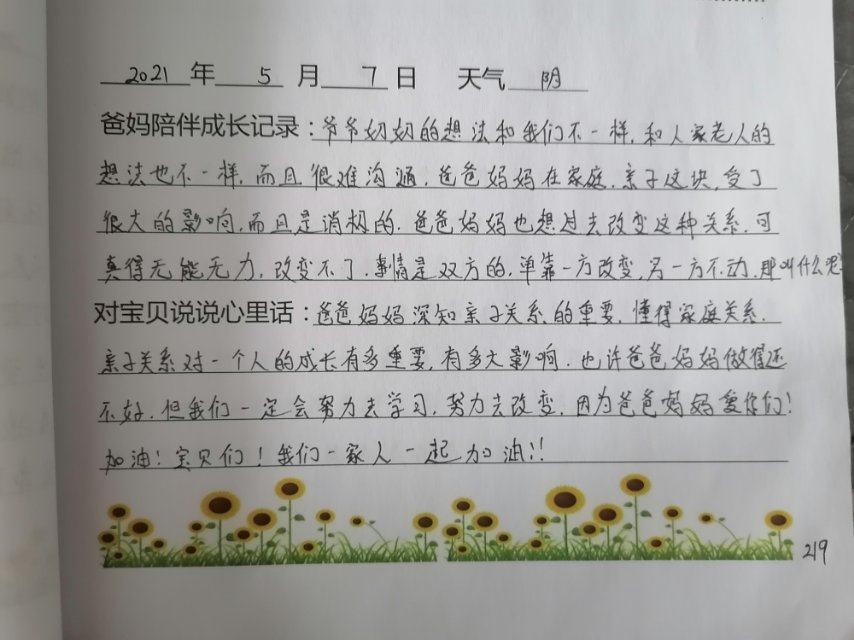 2021年 5 月 7 日 天气 阴
爸妈陪伴成长记录：爷爷奶奶的想法和我们不一样，和人家老人的
想法也不一样，而且很难沟通，爸爸妈妈在家庭，亲子这块，受了
很大的影响，而且是消极的，爸爸妈妈也想过去改变这种关系，可
真得无能无力，改变不了，事情是双方的，单靠一方改变，另一方不动，那叫什么呢？
对宝贝说说心里话：爸爸妈妈深知亲子关系的重要，懂得家庭关系，
亲子关系对一个人的成长有多重要，有多大影响，也许爸爸妈妈做得还
不好，但我们一定会努力去学习，努力去改变，因为爸爸妈妈爱你们！
加油！宝贝们！我们一家人一起加油！！
219